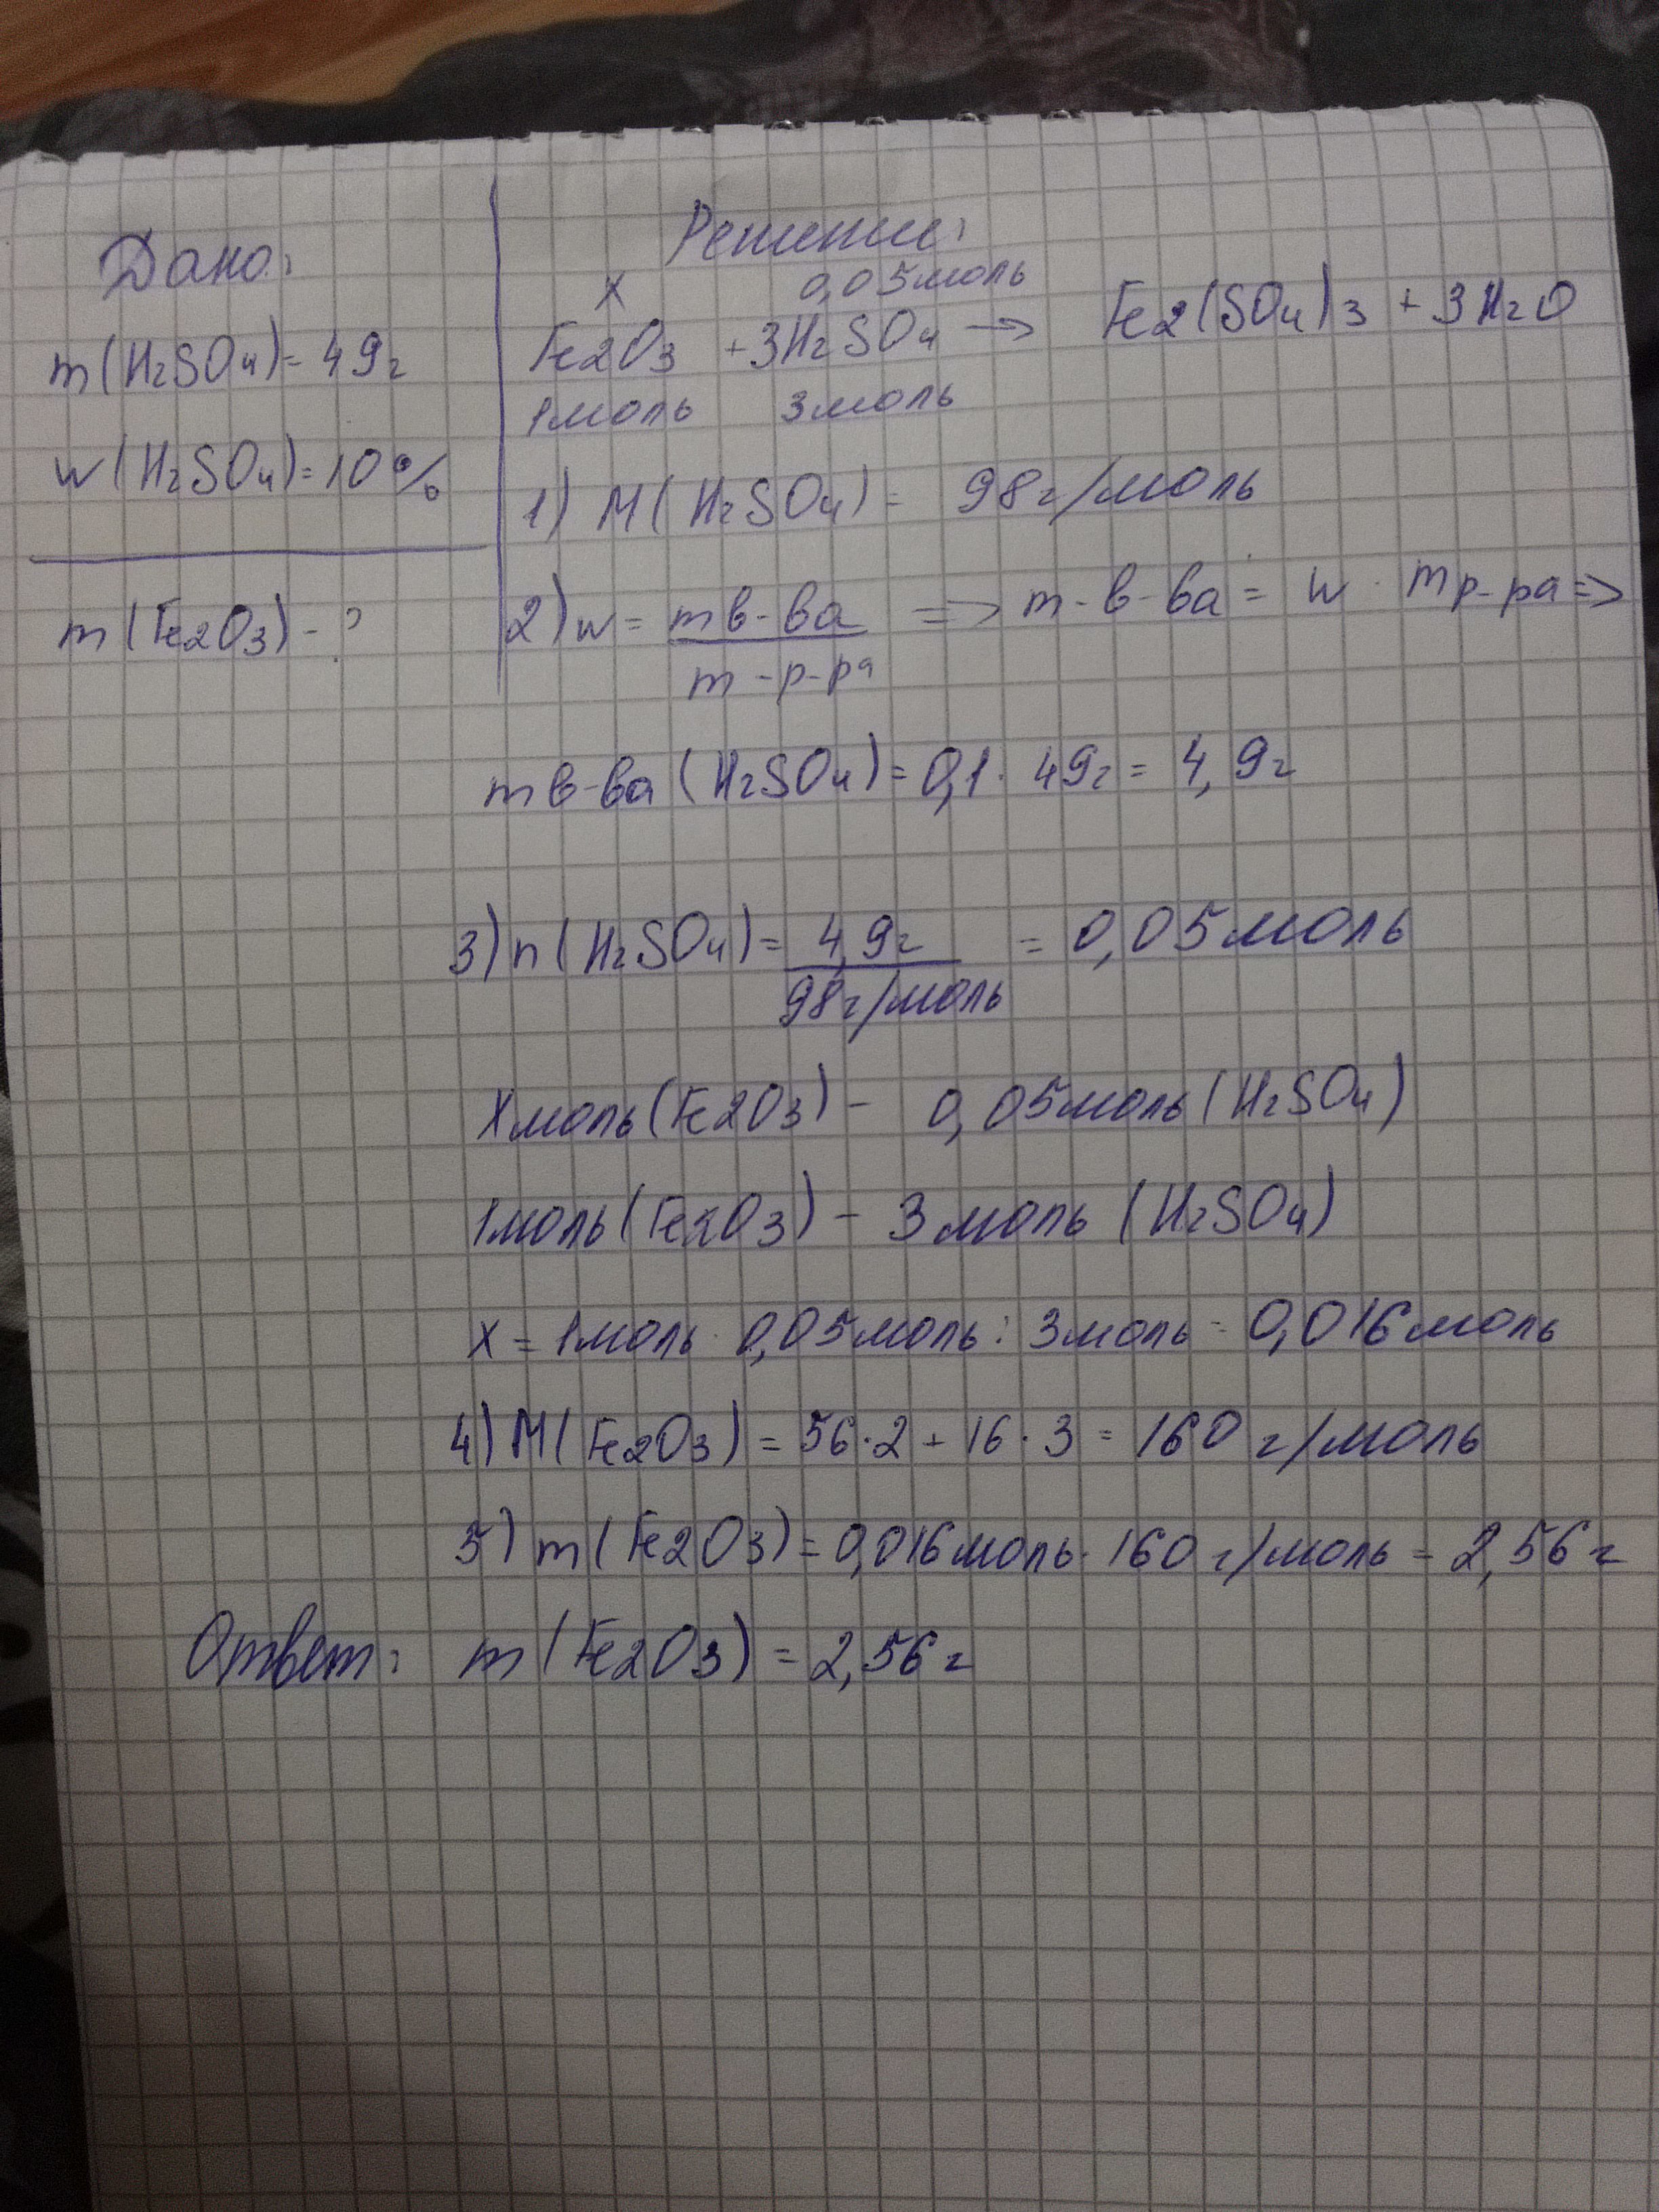 Дано:
m(H2SO4)=49г
w(H2SO4)=10%
m(Fe2O3)-?
Решение:
x 0,05моль
Fe2O3 + 3H2SO4 → Fe2(SO4)3 + 3H2O
1моль 3моль
1) M(H2SO4) = 98г/моль
2) w = mв-ва / m-р-ра => m-в-ва = w · mр-ра =>
mв-ва (H2SO4) = 0,1 · 49г = 4,9г
3) n(H2SO4) = 4,9г / 98г/моль = 0,05моль
Xмоль(Fe2O3) - 0,05моль(H2SO4)
1моль(Fe2O3) - 3моль (H2SO4)
x = 1моль · 0,05моль : 3моль = 0,016моль
4) M(Fe2O3) = 56·2 + 16·3 = 160 г/моль
5) m(Fe2O3) = 0,016моль · 160 г/моль = 2,56г
Ответ: m(Fe2O3) = 2,56г